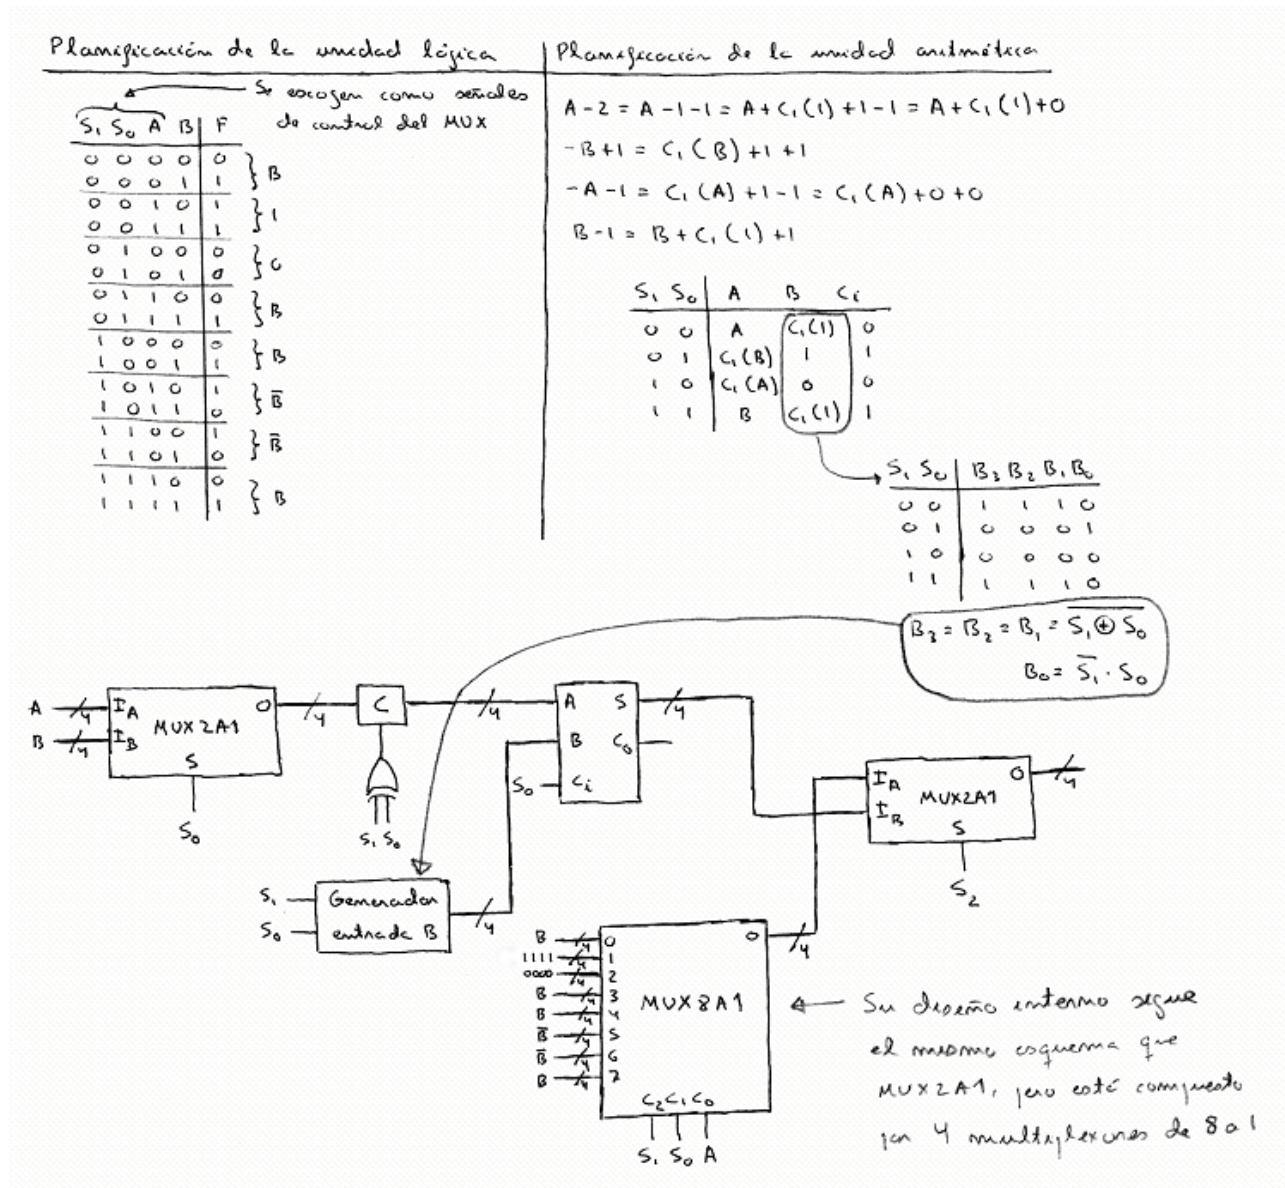 Planificación de la unidad lógica
Se escogen como señales
de control del MUX
S₁ S₀ A B F
0 0 0 0 0
0 0 0 1 1
} B
0 0 1 0 1
0 0 1 1 1
} 1
0 1 0 0 0
0 1 0 1 0
} 0
0 1 1 0 0
0 1 1 1 1
} B
1 0 0 0 0
1 0 0 1 1
} B
1 0 1 0 1
1 0 1 1 0
} B̅
1 1 0 0 1
1 1 0 1 0
} B̅
1 1 1 0 0
1 1 1 1 1
} B
Planificación de la unidad aritmética
A-2 = A-1-1 = A+C₁(1)+1-1 = A+C₁(1)+0
-B+1 = C₁(B)+1+1
-A-1 = C₁(A)+1-1 = C₁(A)+0+0
B-1 = B+C₁(1)+1
S₁ S₀ A B Ci
0 0 A C₁(1) 0
0 1 C₁(B) 1 1
1 0 C₁(A) 0 0
1 1 B C₁(1) 1
S₁ S₀ B₃ B₂ B₁ B₀
0 0 1 1 1 0
0 1 0 0 0 1
1 0 0 0 0 0
1 1 1 1 1 0
B₃ = B₂ = B₁ = \overline{S₁ ⊕ S₀}
B₀ = \overline{S₁} · S₀
A 4 I_A O 4
B 4 I_B
MUX2A1
S
S₀
C
S₁ S₀
4
A S 4
B C₀
S₀ Ci
S₁
S₀
Generador
entrada B
4
I_A O 4
I_B
MUX2A1
S
S₂
B 4 0 O 4
1111 4 1
0000 4 2
B 4 3
B 4 4
B̅ 4 5
B̅ 4 6
B 4 7
MUX8A1
C₂ C₁ C₀
S₁ S₀ A
Su diseño interno sigue
el mismo esquema que
MUX2A1, pero está compuesto
por 4 multiplexores de 8 a 1